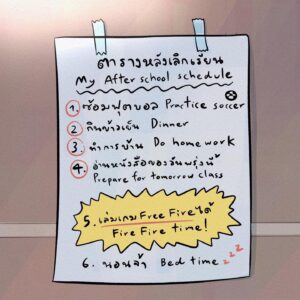 ตารางหลังเลิกเรียน
My After school schedule
1. ซ้อมฟุตบอล Practice soccer
2. กินข้าวเย็น Dinner
3. ทำการบ้าน Do home work
4. อ่านหนังสือของวันพรุ่งนี้
Prepare for tomorrow class
5. เล่นเกม Free Fire ได้
Fire Fire time!
6. นอนจ้า Bed time zzz